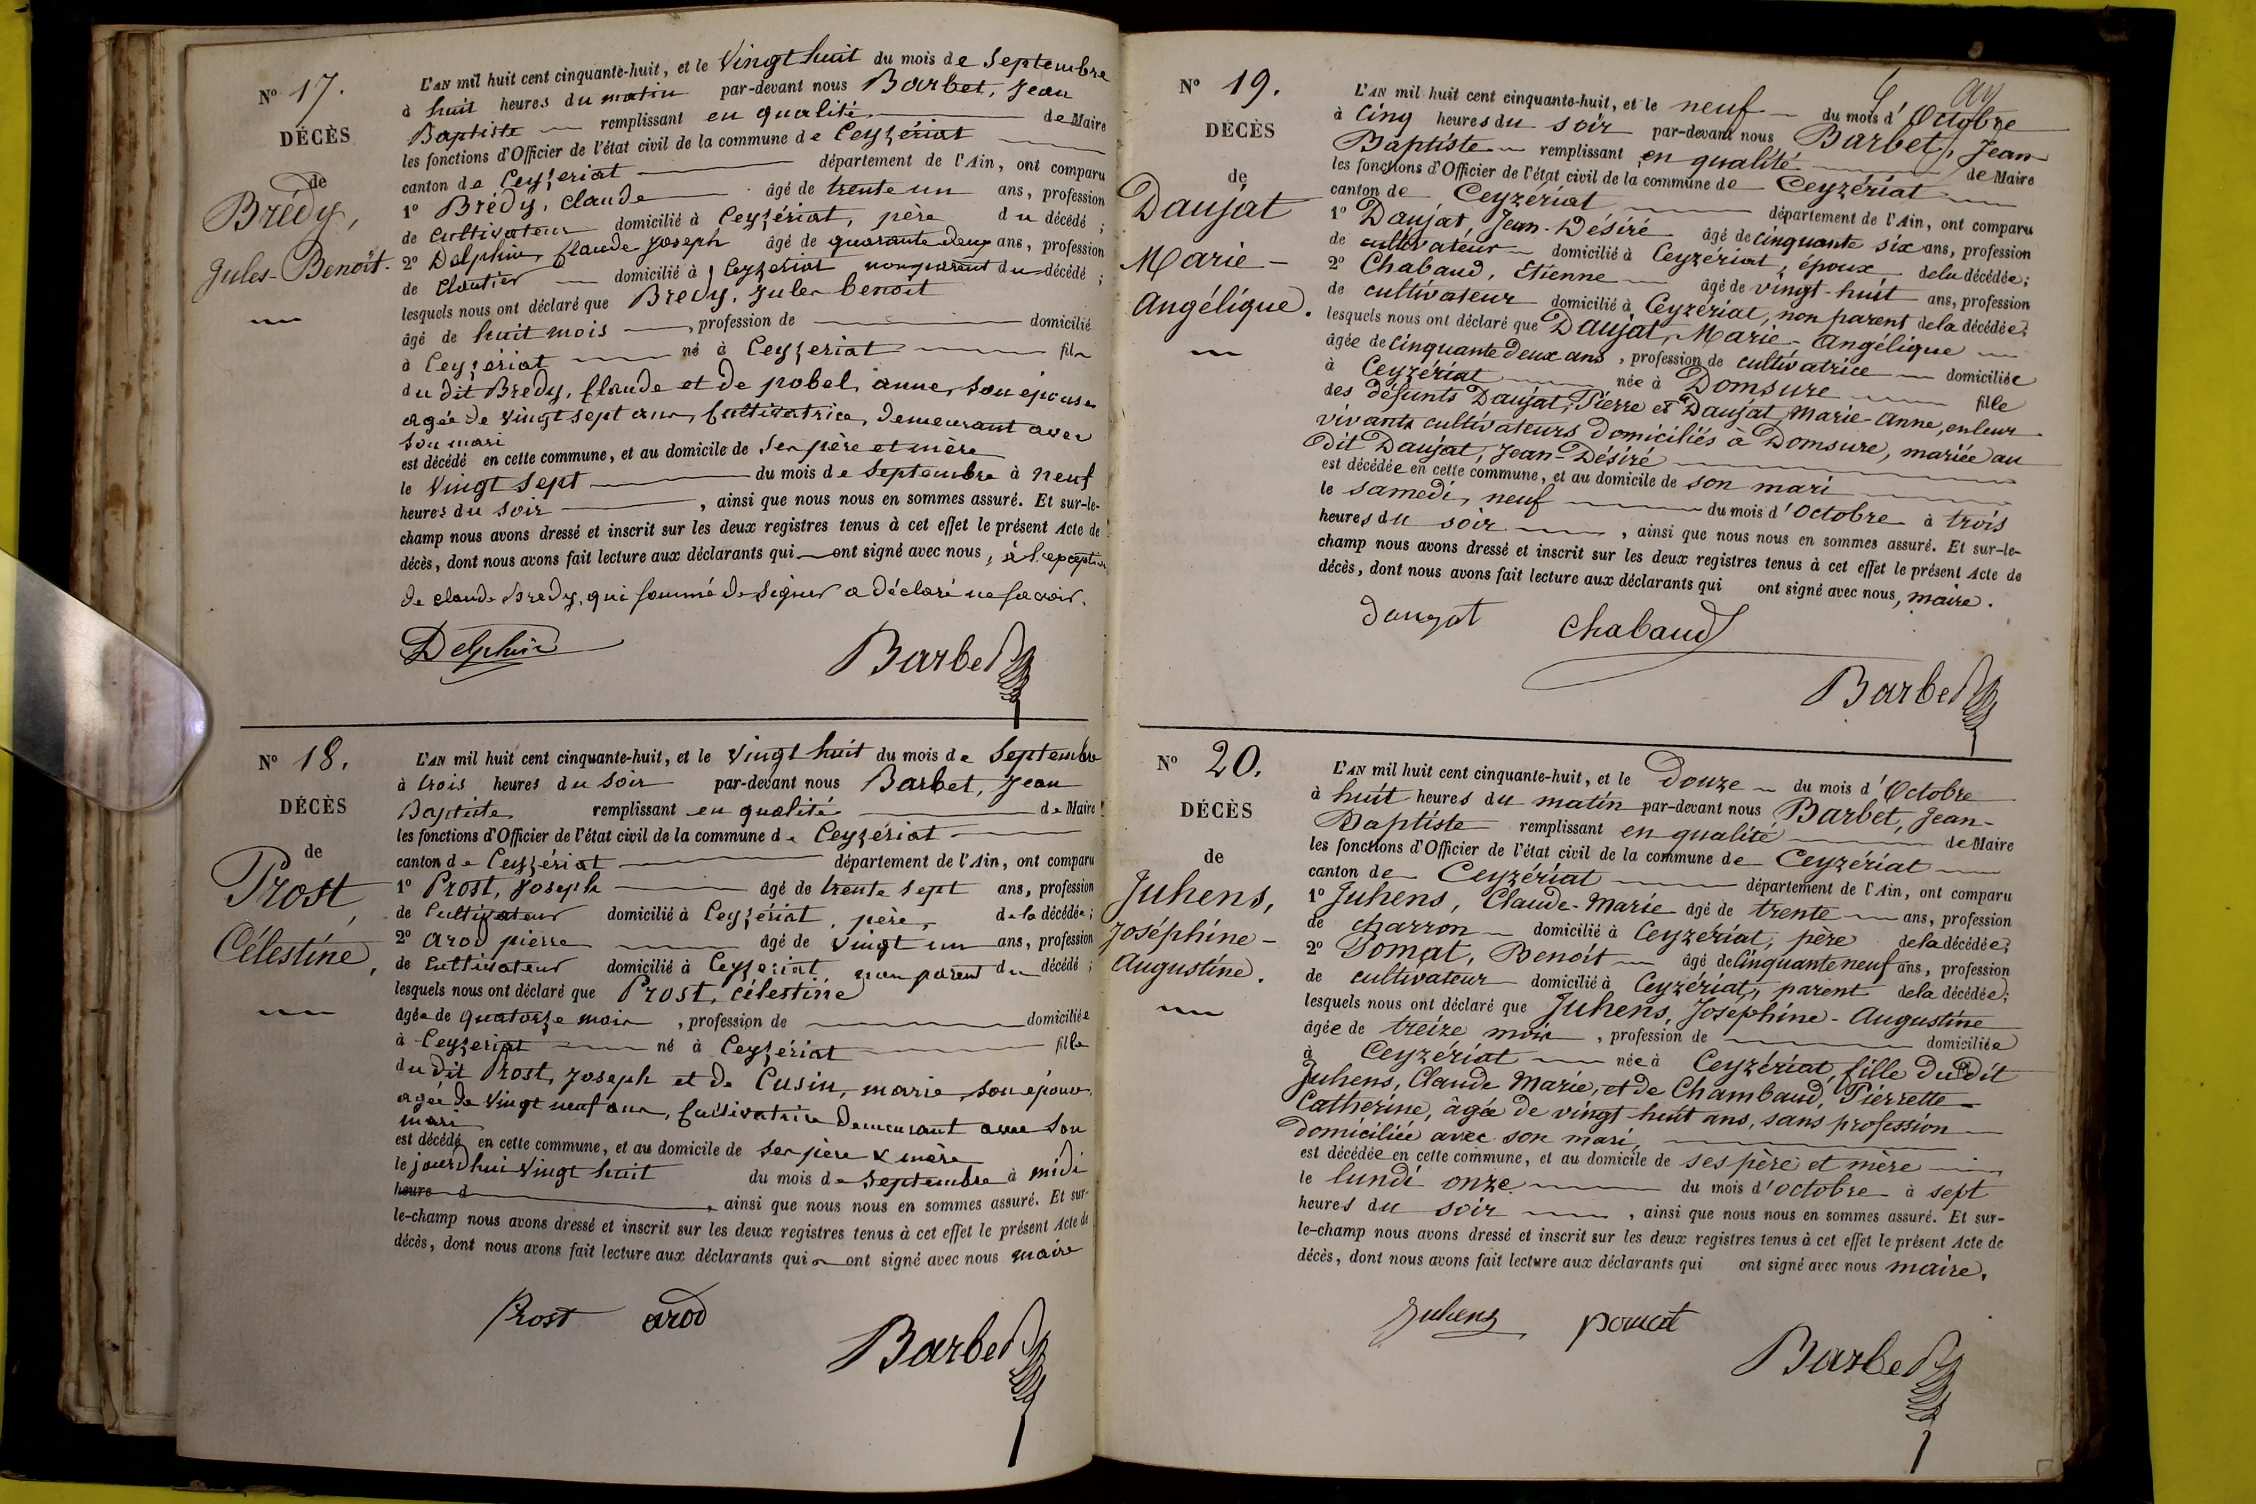 Nº 17.
DÉCÈS
de
Brédy,
Jules-Benoît.
L'AN mil huit cent cinquante-huit, et le Vingt huit du mois de Septembre
à huit heures du matin par-devant nous Barbet, Jean
Baptiste remplissant en qualité de Maire
les fonctions d'Officier de l'état civil de la commune de Ceyzériat
canton de Ceyzériat département de l'Ain, ont comparu
1º Brédy, Claude âgé de trente un ans, profession
de Cultivateur domicilié à Ceyzériat, père du décédé ;
2º Delphin, Claude Joseph âgé de quarante deux ans, profession
de Cloutier domicilié à Ceyzériat non parent du décédé ;
lesquels nous ont déclaré que Bredy, Jules benoit
âgé de huit mois, profession de domicilié
à Ceyzériat né à Ceyzeriat fils
du dit Bredy, Claude et de pobel, anne, son épouse
agée de vingt sept ans, Cultivatrice, demeurant avec
son mari
est décédé en cette commune, et au domicile de ses père et mère
le Vingt Sept du mois de Septembre à Neuf
heures du Soir, ainsi que nous nous en sommes assuré. Et sur-le-
champ nous avons dressé et inscrit sur les deux registres tenus à cet effet le présent Acte de
décès, dont nous avons fait lecture aux déclarants qui ont signé avec nous, à l'exception
de claude Bredy, qui sommé de signer a déclaré ne savoir.
Delphin Barbet
Nº 18.
DÉCÈS
de
Prost,
Célestine,
L'AN mil huit cent cinquante-huit, et le Vingt huit du mois de Septembre
à trois heures du Soir par-devant nous Barbet, Jean
Baptiste remplissant en qualité de Maire
les fonctions d'Officier de l'état civil de la commune de Ceyzériat
canton de Ceyzériat département de l'Ain, ont comparu
1º Prost, Joseph âgé de trente sept ans, profession
de Cultivateur domicilié à Ceyzériat, père, de la décédée ;
2º arod pierre âgé de Vingt un ans, profession
de Cultivateur domicilié à Ceyzeriat, non parent du décédé ;
lesquels nous ont déclaré que Prost, célestine
âgée de quatorze mois, profession de domiciliée
à Ceyzeriat né à Ceyzériat fille
du dit Prost, Joseph et de Cusin, marie, son épouse,
agée de Vingt neuf ans, Cultivatrice demeurant avec son
mari
est décédé en cette commune, et au domicile de ses père & mère
le jourdhui Vingt huit du mois de Septembre à midi
heure d, ainsi que nous nous en sommes assuré. Et sur-
le-champ nous avons dressé et inscrit sur les deux registres tenus à cet effet le présent Acte de
décès, dont nous avons fait lecture aux déclarants qui ont signé avec nous maire
Prost arod
Barbet
Nº 19.
DÉCÈS
de
Daujat
Marie-
Angélique.
L'AN mil huit cent cinquante-huit, et le neuf du mois d'Octobre
à Cinq heures du soir par-devant nous Barbet, Jean
Baptiste remplissant en qualité de Maire
les fonctions d'Officier de l'état civil de la commune de Ceyzériat
canton de Ceyzériat département de l'Ain, ont comparu
1º Daujat, Jean-Désiré âgé de cinquante six ans, profession
de cultivateur domicilié à Ceyzériat, époux de la décédée ;
2º Chabaud, Etienne âgé de vingt-huit ans, profession
de cultivateur domicilié à Ceyzériat, non parent de la décédée ;
lesquels nous ont déclaré que Daujat, Marie-Angélique
âgée de cinquante deux ans, profession de cultivatrice domiciliée
à Ceyzériat née à Domsure fille
des défunts Daujat, Pierre et Daujat, Marie-Anne, en leur
vivants cultivateurs domiciliés à Domsure, mariée au
dit Daujat, Jean-Désiré
est décédée en cette commune, et au domicile de son mari
le samedi, neuf du mois d'Octobre à trois
heures du soir, ainsi que nous nous en sommes assuré. Et sur-le-
champ nous avons dressé et inscrit sur les deux registres tenus à cet effet le présent Acte de
décès, dont nous avons fait lecture aux déclarants qui ont signé avec nous, maire.
Daugat Chabaud
Barbet
Nº 20.
DÉCÈS
de
Juhens,
Joséphine-
Augustine.
L'AN mil huit cent cinquante-huit, et le Douze du mois d'Octobre
à huit heures du matin par-devant nous Barbet, Jean-
Baptiste remplissant en qualité de Maire
les fonctions d'Officier de l'état civil de la commune de Ceyzériat
canton de Ceyzériat département de l'Ain, ont comparu
1º Juhens, Claude-Marie âgé de trente ans, profession
de charron domicilié à Ceyzériat, père de la décédée ;
2º Pomat, Benoît âgé de Cinquante neuf ans, profession
de cultivateur domicilié à Ceyzériat, parent de la décédée ;
lesquels nous ont déclaré que Juhens, Joséphine-Augustine
âgée de treize mois, profession de domiciliée
à Ceyzériat née à Ceyzériat, fille du dit
Juhens, Claude Marie, et de Chambaud, Pierrette
Catherine, âgée de vingt huit ans, sans profession
domiciliée avec son mari,
est décédée en cette commune, et au domicile de ses père et mère
le lundi onze du mois d'Octobre à sept
heures du soir, ainsi que nous nous en sommes assuré. Et sur-
le-champ nous avons dressé et inscrit sur les deux registres tenus à cet effet le présent Acte de
décès, dont nous avons fait lecture aux déclarants qui ont signé avec nous maire.
Juhens pomat
Barbet